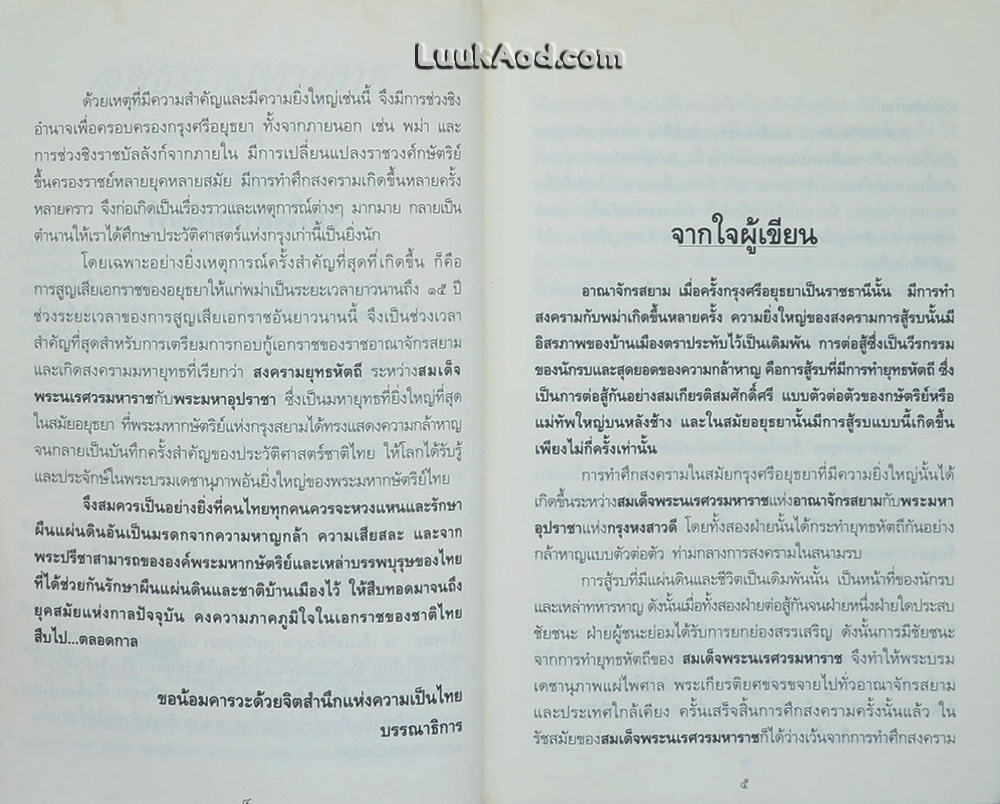 LuukAod.com
ด้วยเหตุที่มีความสำคัญและมีความยิ่งใหญ่เช่นนี้ จึงมีการช่วงชิง
อำนาจเพื่อครอบครองกรุงศรีอยุธยา ทั้งจากภายนอก เช่น พม่า และ
การช่วงชิงราชบัลลังก์จากภายใน มีการเปลี่ยนแปลงราชวงศ์กษัตริย์
ขึ้นครองราชย์หลายยุคหลายสมัย มีการทำศึกสงครามเกิดขึ้นหลายครั้ง
หลายคราว จึงก่อเกิดเป็นเรื่องราวและเหตุการณ์ต่างๆ มากมาย กลายเป็น
ตำนานให้เราได้ศึกษาประวัติศาสตร์แห่งกรุงเก่านี้เป็นยิ่งนัก
โดยเฉพาะอย่างยิ่งเหตุการณ์ครั้งสำคัญที่สุดที่เกิดขึ้น ก็คือ
การสูญเสียเอกราชของอยุธยาให้แก่พม่าเป็นระยะเวลายาวนานถึง ๑๕ ปี
ช่วงระยะเวลาของการสูญเสียเอกราชอันยาวนานนี้ จึงเป็นช่วงเวลา
สำคัญที่สุดสำหรับการเตรียมการกอบกู้เอกราชของราชอาณาจักรสยาม
และเกิดสงครามมหายุทธที่เรียกว่า สงครามยุทธหัตถี ระหว่างสมเด็จ
พระนเรศวรมหาราชกับพระมหาอุปราชา ซึ่งเป็นมหายุทธที่ยิ่งใหญ่ที่สุด
ในสมัยอยุธยา ที่พระมหากษัตริย์แห่งกรุงสยามได้ทรงแสดงความกล้าหาญ
จนกลายเป็นบันทึกครั้งสำคัญของประวัติศาสตร์ชาติไทย ให้โลกได้รับรู้
และประจักษ์ในพระบรมเดชานุภาพอันยิ่งใหญ่ของพระมหากษัตริย์ไทย
จึงสมควรเป็นอย่างยิ่งที่คนไทยทุกคนควรจะหวงแหนและรักษา
ผืนแผ่นดินอันเป็นมรดกจากความหาญกล้า ความเสียสละ และจาก
พระปรีชาสามารถขององค์พระมหากษัตริย์และเหล่าบรรพบุรุษของไทย
ที่ได้ช่วยกันรักษาผืนแผ่นดินและชาติบ้านเมืองไว้ ให้สืบทอดมาจนถึง
ยุคสมัยแห่งกาลปัจจุบัน คงความภาคภูมิใจในเอกราชของชาติไทย
สืบไป...ตลอดกาล
ขอน้อมคารวะด้วยจิตสำนึกแห่งความเป็นไทย
บรรณาธิการ
จากใจผู้เขียน
อาณาจักรสยาม เมื่อครั้งกรุงศรีอยุธยาเป็นราชธานีนั้น มีการทำ
สงครามกับพม่าเกิดขึ้นหลายครั้ง ความยิ่งใหญ่ของสงครามการสู้รบนั้นมี
อิสรภาพของบ้านเมืองตราประทับไว้เป็นเดิมพัน การต่อสู้ซึ่งเป็นวีรกรรม
ของนักรบและสุดยอดของความกล้าหาญ คือการสู้รบที่มีการทำยุทธหัตถี ซึ่ง
เป็นการต่อสู้กันอย่างสมเกียรติสมศักดิ์ศรี แบบตัวต่อตัวของกษัตริย์หรือ
แม่ทัพใหญ่บนหลังช้าง และในสมัยอยุธยานั้นมีการสู้รบแบบนี้เกิดขึ้น
เพียงไม่กี่ครั้งเท่านั้น
การทำศึกสงครามในสมัยกรุงศรีอยุธยาที่มีความยิ่งใหญ่นั้นได้
เกิดขึ้นระหว่างสมเด็จพระนเรศวรมหาราชแห่งอาณาจักรสยามกับพระมหา
อุปราชาแห่งกรุงหงสาวดี โดยทั้งสองฝ่ายนั้นได้กระทำยุทธหัตถีกันอย่าง
กล้าหาญแบบตัวต่อตัว ท่ามกลางการสงครามในสนามรบ
การสู้รบที่มีแผ่นดินและชีวิตเป็นเดิมพันนั้น เป็นหน้าที่ของนักรบ
และเหล่าทหารหาญ ดังนั้นเมื่อทั้งสองฝ่ายต่อสู้กันจนฝ่ายหนึ่งฝ่ายใดประสบ
ชัยชนะ ฝ่ายผู้ชนะย่อมได้รับการยกย่องสรรเสริญ ดังนั้นการมีชัยชนะ
จากการทำยุทธหัตถีของ สมเด็จพระนเรศวรมหาราช จึงทำให้พระบรม
เดชานุภาพแผ่ไพศาล พระเกียรติยศขจรขจายไปทั่วอาณาจักรสยาม
และประเทศใกล้เคียง ครั้นเสร็จสิ้นการศึกสงครามครั้งนั้นแล้ว ใน
รัชสมัยของสมเด็จพระนเรศวรมหาราชก็ได้ว่างเว้นจากการทำศึกสงคราม
๕